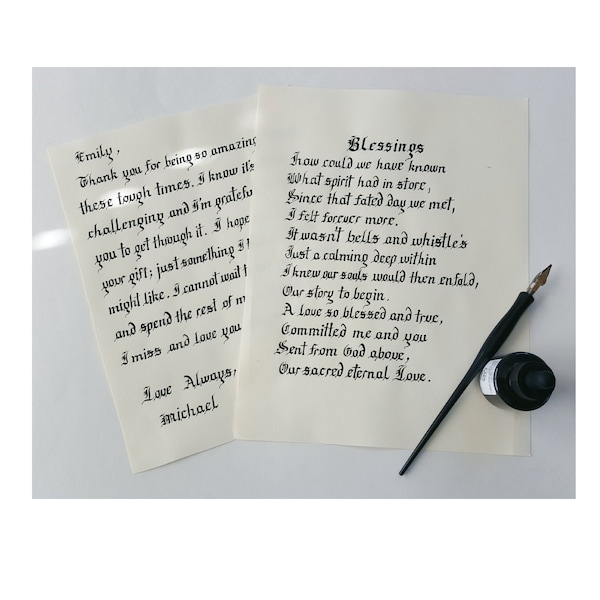 Emily,
Thank you for being so amazing
these tough times. I know it's
challenging and I'm grateful
you to get though it. I hope
your gift; just something I
might like. I cannot wait
and spend the rest of
I miss and love you
Love Always,
Michael
Blessings
how could we have known
What spirit had in store,
Since that fated day we met,
I felt forever more.
It wasn't bells and whistle's
Just a calming deep within
I knew our souls would then enfold,
Our story to begin.
A love so blessed and true,
Committed me and you
Sent from God above,
Our sacred eternal Love.